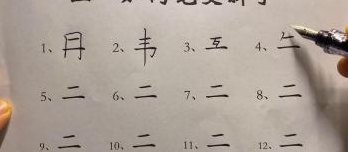 1、月 2、韦 3、互 4、
5、二 6、二 7、二 8、二
9、二 10、二 11、二 12、二